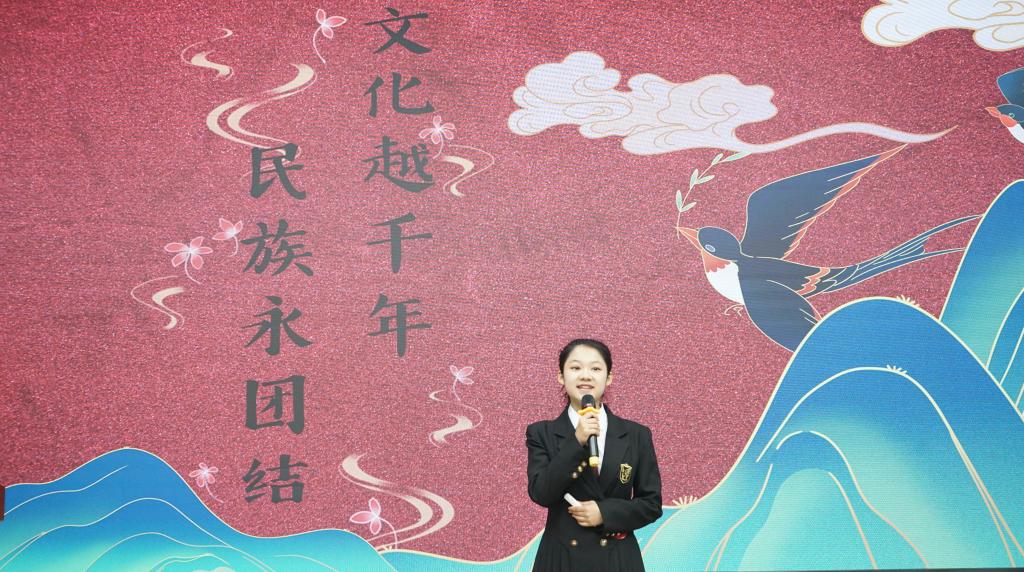 文化越千年
民族永团结